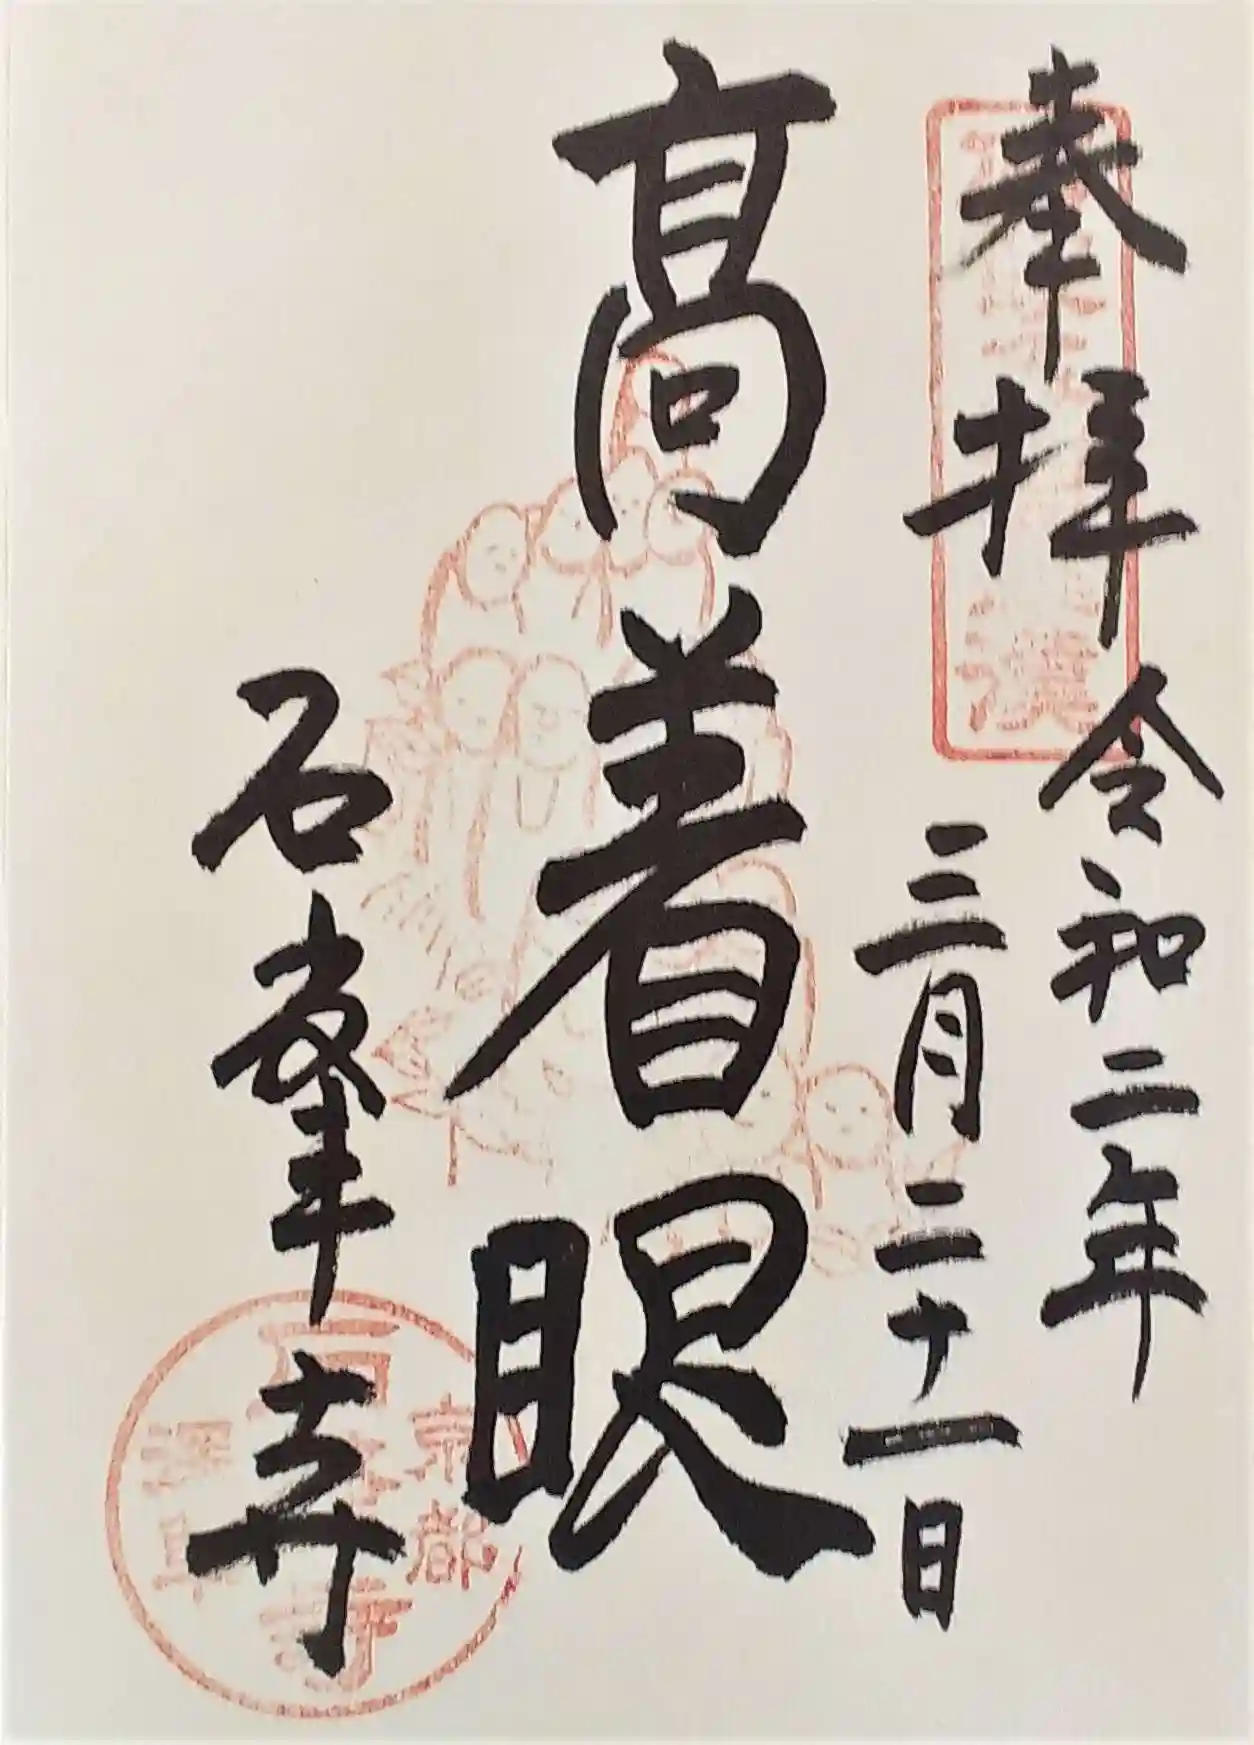 奉拝
令和二年
三月二十一日
高着眼
石峯寺
京都
深草
石峯寺